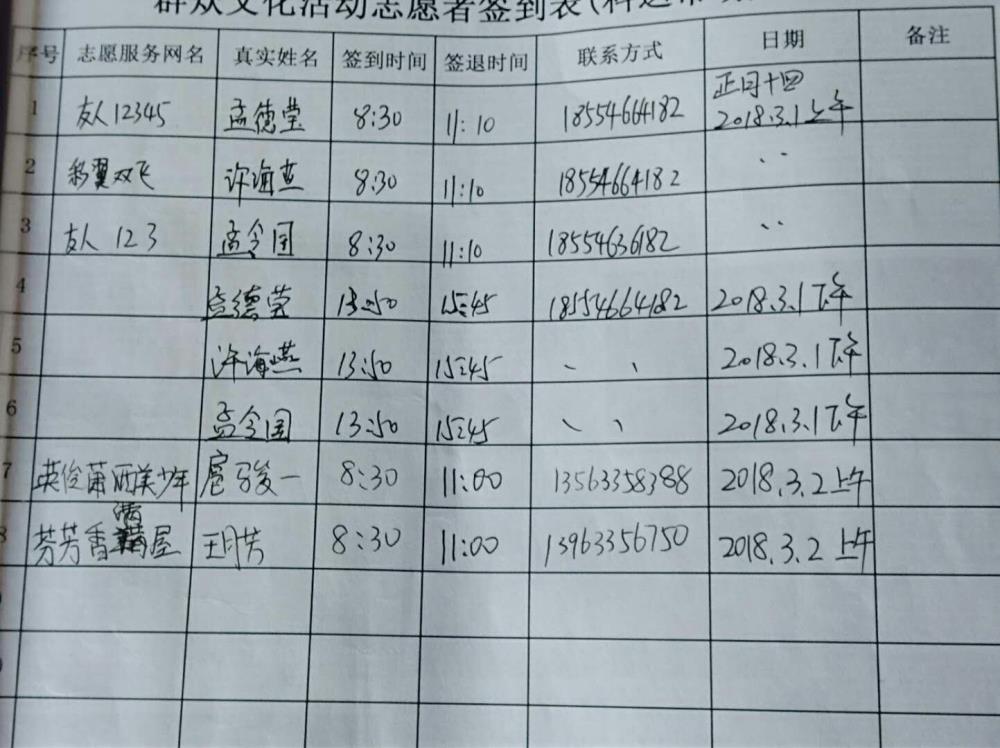 群众文化活动志愿者签到表(科
序号 志愿服务网名 真实姓名 签到时间 签退时间 联系方式 日期 备注
正月十四
1 友人12345 孟德莹 8:30 11:10 18554664182 2018.3.1上午
2 彩翼双飞 许海燕 8:30 11:10 18554664182 〃
3 友人 123 孟令国 8:30 11:10 18554636182 〃
4 孟德莹 13:50 15:45 18554664182 2018.3.1下午
5 许海燕 13:50 15:45 、 、 2018.3.1下午
6 孟令国 13:50 15:45 、 、 2018.3.1下午
7 英俊萧丽美少年 扈骏一 8:30 11:00 13563358388 2018.3.2上午
8 芳芳香满屋 王月芳 8:30 11:00 13963356750 2018.3.2上午